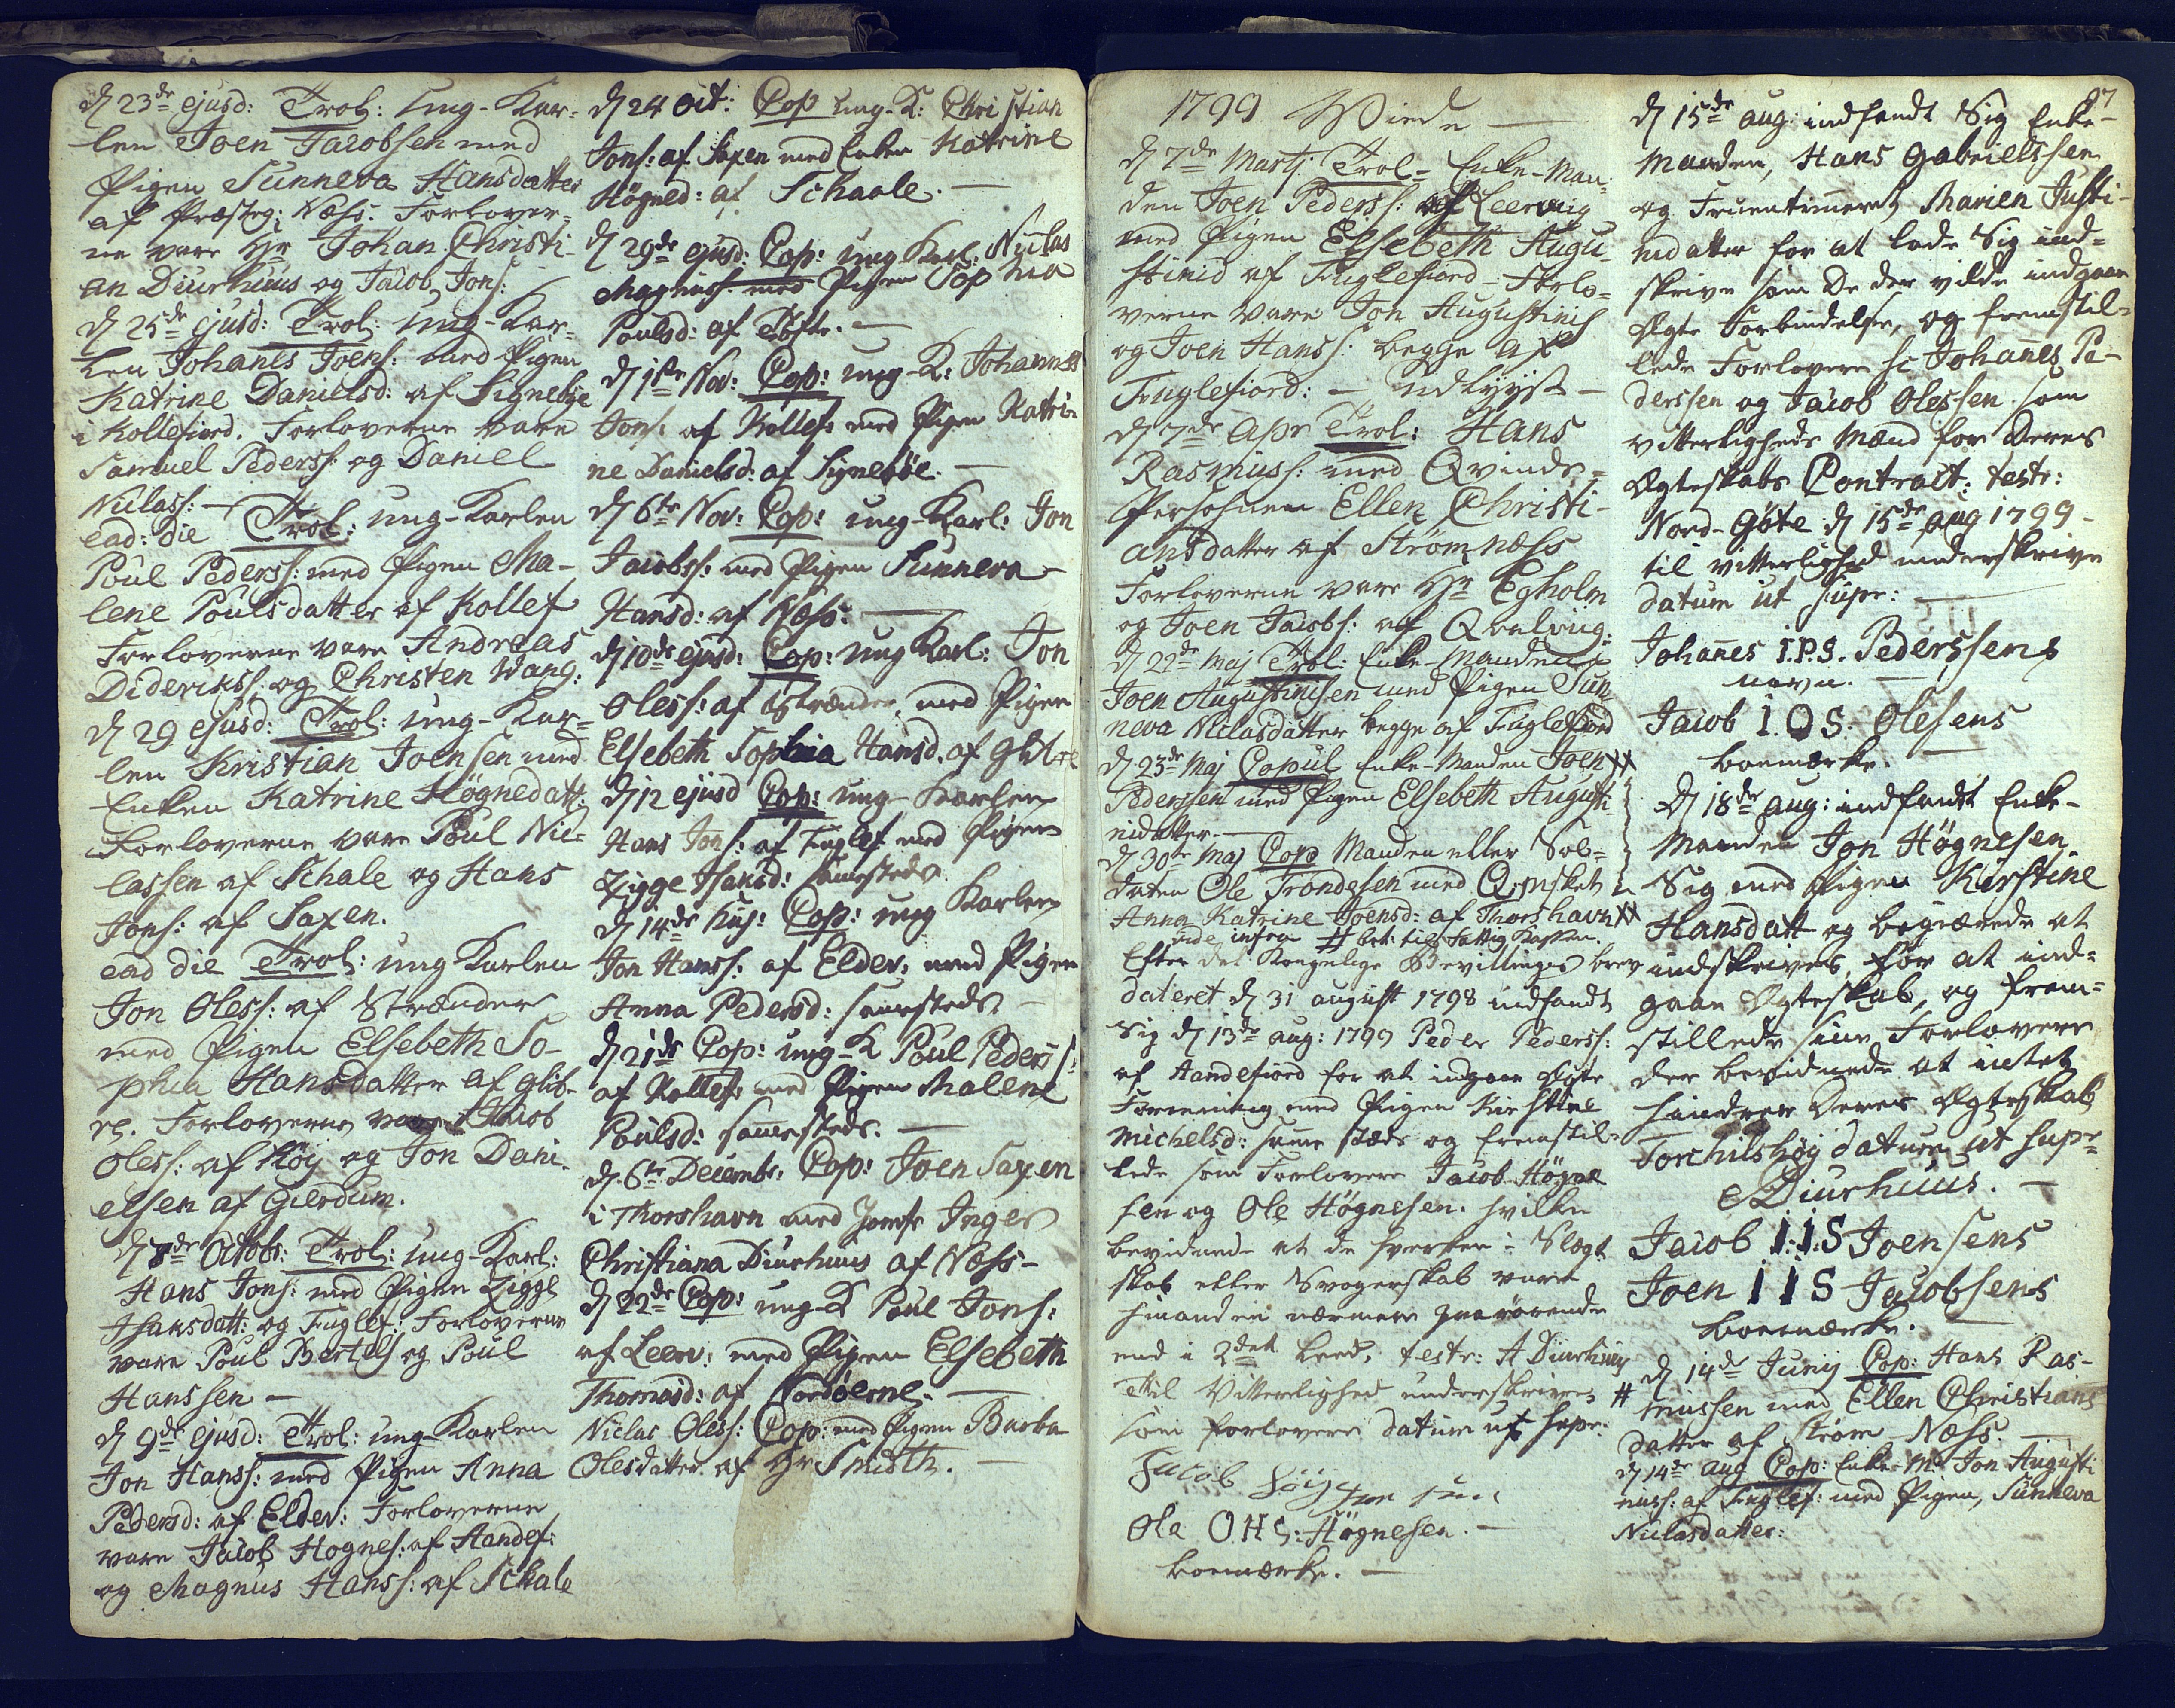 d 23de ejusd: Trol: Ung-Kar-
len Joen Jacobsen med
Pigen Sunneva Hansdatter
af Præsteg: Næss. Forlover-
ne vare Hr Johan Christi-
an Diurhuus og Jacob Jons:
d 25de ejusd: Trol: Ung-Kar-
len Johanes Joens: med Pigen
Katrine Danielsd: af Signebye
i Kollefiord. Forloverne vare
Samuel Peders: og Daniel
Niclass: —
ead: die Trol: ung-Karlen
Poul Peders: med Pigen Ma-
lene Poulsdatter af Kollef
Forloverne vare Andreas
Dideriks: og Christen Wang:
d 29 ejusd: Trol: ung-Kar-
len Kristian Joensen med
Enken Katrine Högnedatt:
Forloverne vare Poul Nic-
lassen af Schale og Hans
Jons: af Saxen.
ead die Trol: ung Karlen
Jon Oless: af Strænder
med Pigen Elsebeth So-
phia Hansdatter af Glib-
re. Forloverne vare Jacob
Oless: af Köy og Jon Dani-
elsen af Gierdum.
d 8de Octobr: Trol: ung-Karl:
Hans Jons: med Pigen Zigge
Isaksdatt: og Fuglef: Forloverne
vare Poul Bertels og Poul
Hanssen —
d 9de ejusd: Trol: ung-Karlen
Jon Hanss: med Pigen Anna
Pedersd: af Eldev: Forloverne
vare Jacob Hognes: af Handef:
og Magnus Hanss: af Schale
d 24 Oct: Cop ung-K: Christian
Jons: af Saxen med Enken Katrine
Högned: af Schaale. —
d 29de ejusd: Cop: ung Karl: Niclas
Magnuss: med Pigen Sophia
Poulsd: af Töfte. —
d 1ste Nov: Cop: ung-K: Johannes
Jons: af Kollef: med Pigen Katri-
ne Danielsd: af Signeböe. —
d 6te Nov: Cop: ung-Karl: Jon
Jacobs: med Pigen Sunneva
Hansd: af Næss. —
d 10de ejusd: Cop: ung Karl: Jon
Oless: af Strænder, med Pigen
Elsebeth Sophia Hansd. af Glibre
d 12 ejusd Cop: ung-Karlen
Hans Jons: af Fuglef med Pigen
Zigge Isaksd: samesteds
d 14de hujs: Cop: ung Karlen
Jon Hanss: af Eldev: med Pigen
Anna Pedersd: samesteds —
d 21de Cop: ung-K Poul Peders:
af Kollef: med Pigen Malene
Poulsd: samesteds. —
d 6te Decembr. Cop: Joen Saxen
i Thorshavn med Jomfr Inger
Christiana Diurhuus af Næss-
d 22de Cop: ung-K Poul Jons:
af Leerv: med Pigen Elsebeth
Thomasd: af Nordöerne. —
Niclas Oless: Cop: med Pigen Barba
Olesdatter af Hr Smidth. —
1799 Viede —
d 7de Martj. Trol- Enke-Man-
den Joen Peders: af Leervig
med Pigen Elsebeth Augu
stinid af Fuglefiord - Forlo-
verne vare Jon Augustins
og Joen Hans: begge af
Fuglefiord: — udlyyst —
d 7de Apr Trol: Hans
Rasmuss: med Qvinde-
Persohnen Ellen Christi-
ansdatter af Strömnæss
Forloverne vare Hr Egholm
og Joen Jacobs: af Qvalvig:
d 22de Maj Trol: Enke-Manden
Joen Augustinsen med Pigen Sun
neva Niclasdatter begge af Fuglefiord
d 23de Maj Copul Enke-Manden Joen XX
Pederssen med Pigen Elsebeth Augusti
nidatter —
d 30te Maj Cop Manden eller Sol-
daten Ole Trondesen med Qvmsket
Anna Katrine Joensd: af Thorshavn XX
vide infra # bet: til Fattig Kassen.
Efter det Kongelige Bevillings brev
dateret d 31 august 1798 indfandt
sig d 13de aug: 1799 Peder Peders:
af Handefiord for at indgaae Ægte
Forening med Pigen Kirstine
Michelsd: samme stæds og fremstil-
lede som Forlovere Jacob Högne
sen og Ole Högnesen. hvilke
bevidnede at de hverken i Slægt
skab eller Svogerskab vare
hinanden nærmere paarörende
end i 2det Leed. testr: A Diurhuus
Til Vitterlighed underskriver
som forlovere datum ut supr.
Jacob
Ole O H S: Högnesen. —
boemærke. —
97
d 15de aug: indfandt Sig Enke-
manden, Hans Gabrielssen
og Fruentimeret Marien Justi-
nidatter for at lade Sig ind-
skrive som De der vilde indgaae
Ægte Forbindelse, og fremstil-
lede Forlovere sc Johanes Pe-
derssen og Jacob Olessen som
vitterligheds Mænd for Deres
Ægteskabs Contract: testr:
Nord-Göte d 15de aug 1799 -
til vitterlighed underskrive
datum ut supr: —
Johanes I.P.S. Pederssens
navn. —
Jacob I O S. Olesens
boemærke. —
d 18de aug: indfandt Enke-
manden Jon Högnesen
Sig med Pigen Kirstine
Hansdatt og begierede at
indskrives for at ind-
gaae Ægteskab, og frem-
stillede sine Forlovere
der bevidnede at intet
hindrer Deres Ægteskab
Torchilshöy datum ut supr
Diurhuus. —
Jacob I:I:S Joensens
Joen I I S Jacobsens
boemærke. —
d 14de Junij Cop: Hans Ras-
# mussen med Ellen Christians
datter af Ström-Næss. —
d 14de aug Cop: Enke-M: Jon Augusti
nuss: af Fuglef: med Pigen, Sunneva
Niclasdatter: